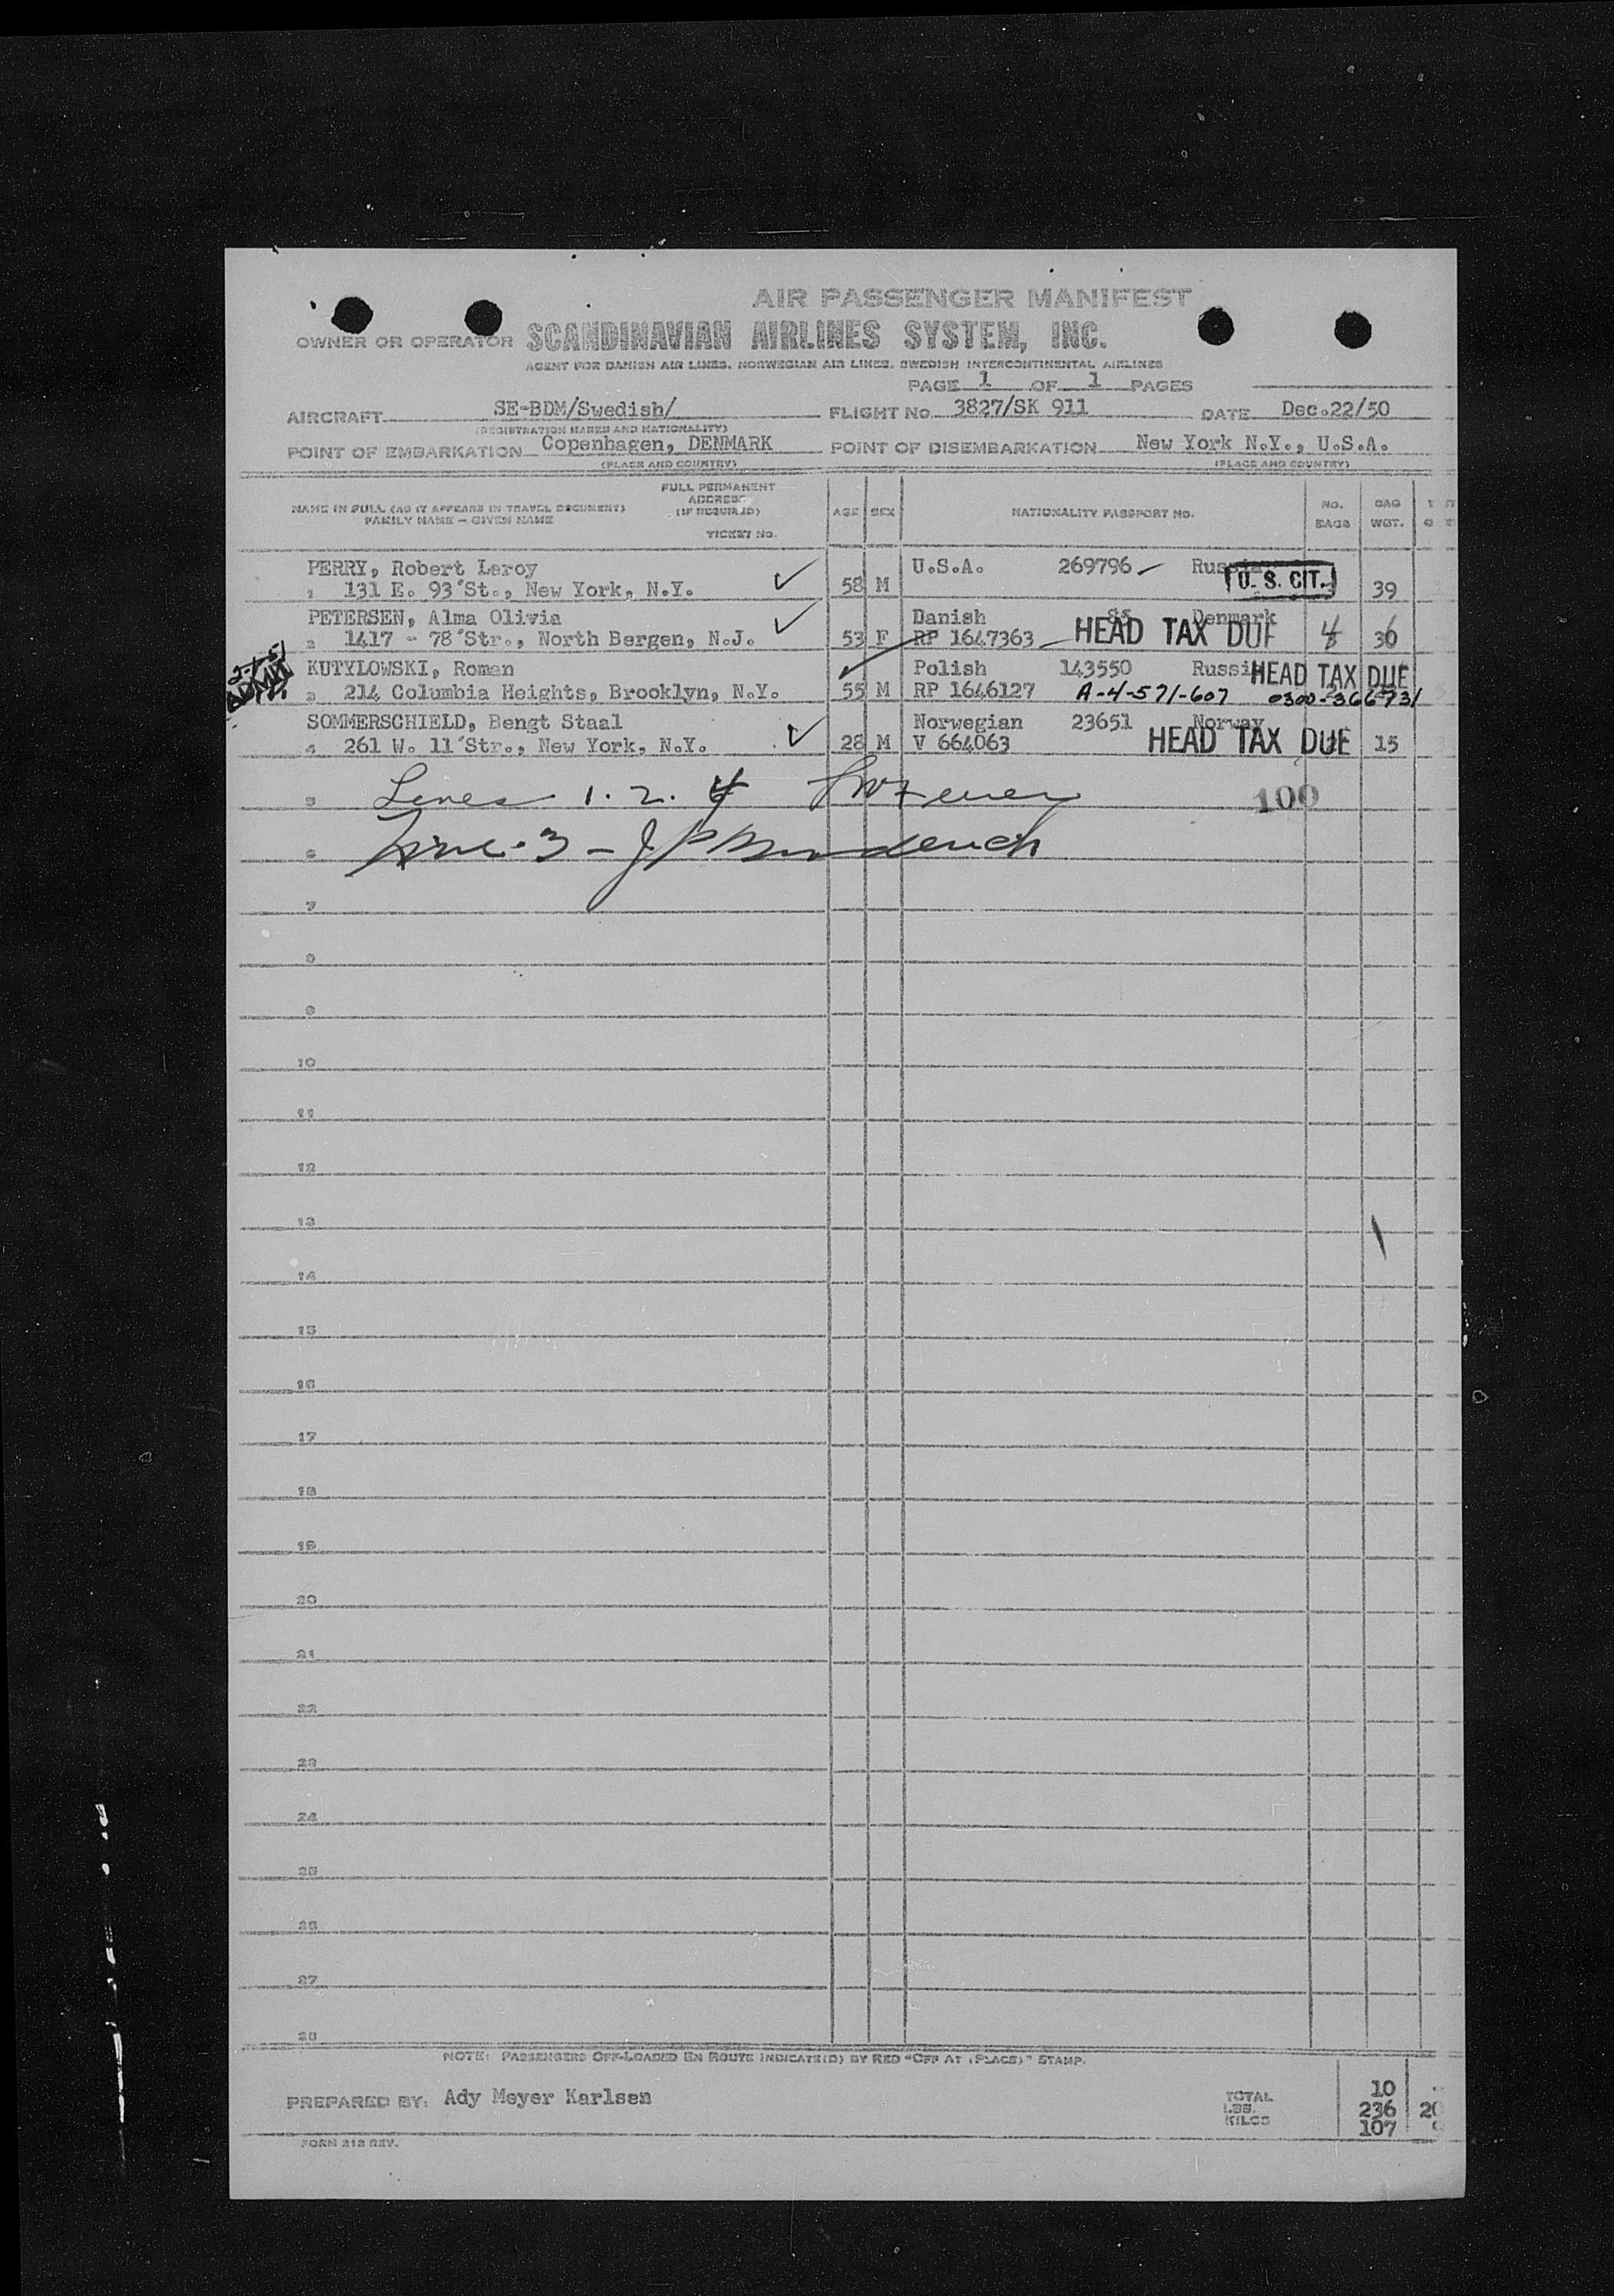 AIR PASSENGER MANIFEST
OWNER OR OPERATOR SCANDINAVIAN AIRLINES SYSTEM, INC.
AGENT FOR DANISH AIR LINES, NORWEGIAN AIR LINES, SWEDISH INTERCONTINENTAL AIRLINES
PAGE 1 OF 1 PAGES
AIRCRAFT SE-BDM/Swedish/ FLIGHT No. 3827/SK 911 DATE Dec.22/50
(REGISTRATION MARKS AND NATIONALITY)
POINT OF EMBARKATION Copenhagen, DENMARK POINT OF DISEMBARKATION New York N.Y., U.S.A.
(PLACE AND COUNTRY) (PLACE AND COUNTRY)
NAME IN FULL (AS IT APPEARS IN TRAVEL DOCUMENT) FULL PERMANENT ADDRESS (IF REQUIRED) AGE SEX NATIONALITY PASSPORT No. NO. BAGS BAG WGT.
FAMILY NAME – GIVEN NAME
TICKET No.
PERRY, Robert Leroy U.S.A. 269796 Russia U. S. CIT.
1 131 E. 93'St., New York, N.Y. 58 M 39
PETERSEN, Alma Olivia Danish 85 Denmark
2 1417 - 78'Str., North Bergen, N.J. 53 F RP 1647363 HEAD TAX DUE 4
KUTYLOWSKI, Roman Polish 143550 Russia HEAD TAX DUE
ADMIT 3 214 Columbia Heights, Brooklyn, N.Y. 55 M RP 1646127 A-4-571-607 0300-366731
SOMMERSCHIELD, Bengt Staal Norwegian 23651 Norway
4 261 W. 11'Str., New York, N.Y. 28 M V 664063 HEAD TAX DUE 15
5 Lines 1. 2. 4 100
6 Line 3 -
7
8
9
10
11
12
13
14
15
16
17
18
19
20
21
22
23
24
25
26
27
28
NOTE: PASSENGERS OFF-LOADED EN ROUTE INDICATE(D) BY RED "OFF AT (PLACE)" STAMP.
PREPARED BY: Ady Meyer Karlsen
TOTAL 10
LBS. 236 20
KILOS 107
FORM 212 REV.